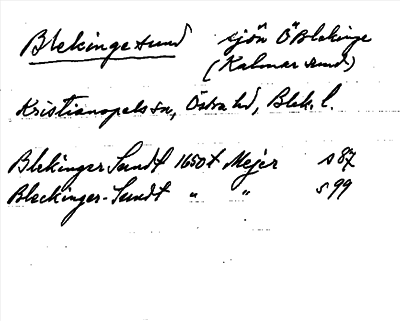 Blekingesund sjön Ö Blekinge
(Kalmar sund)
Kristianopels sn, Östra hd, Blek. l.
Blekinger Sundt 1650t Mejer s 87
Bleckinger-Sundt " " s 99